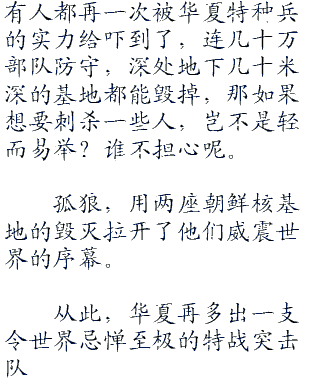 有人都再一次被华夏特种兵
的实力给吓到了，连几十万
部队防守，深处地下几十米
深的基地都能毁掉，那如果
想要刺杀一些人，岂不是轻
而易举？谁不担心呢。
孤狼，用两座朝鲜核基
地的毁灭拉开了他们威震世
界的序幕。
从此，华夏再多出一支
令世界忌惮至极的特战突击
队